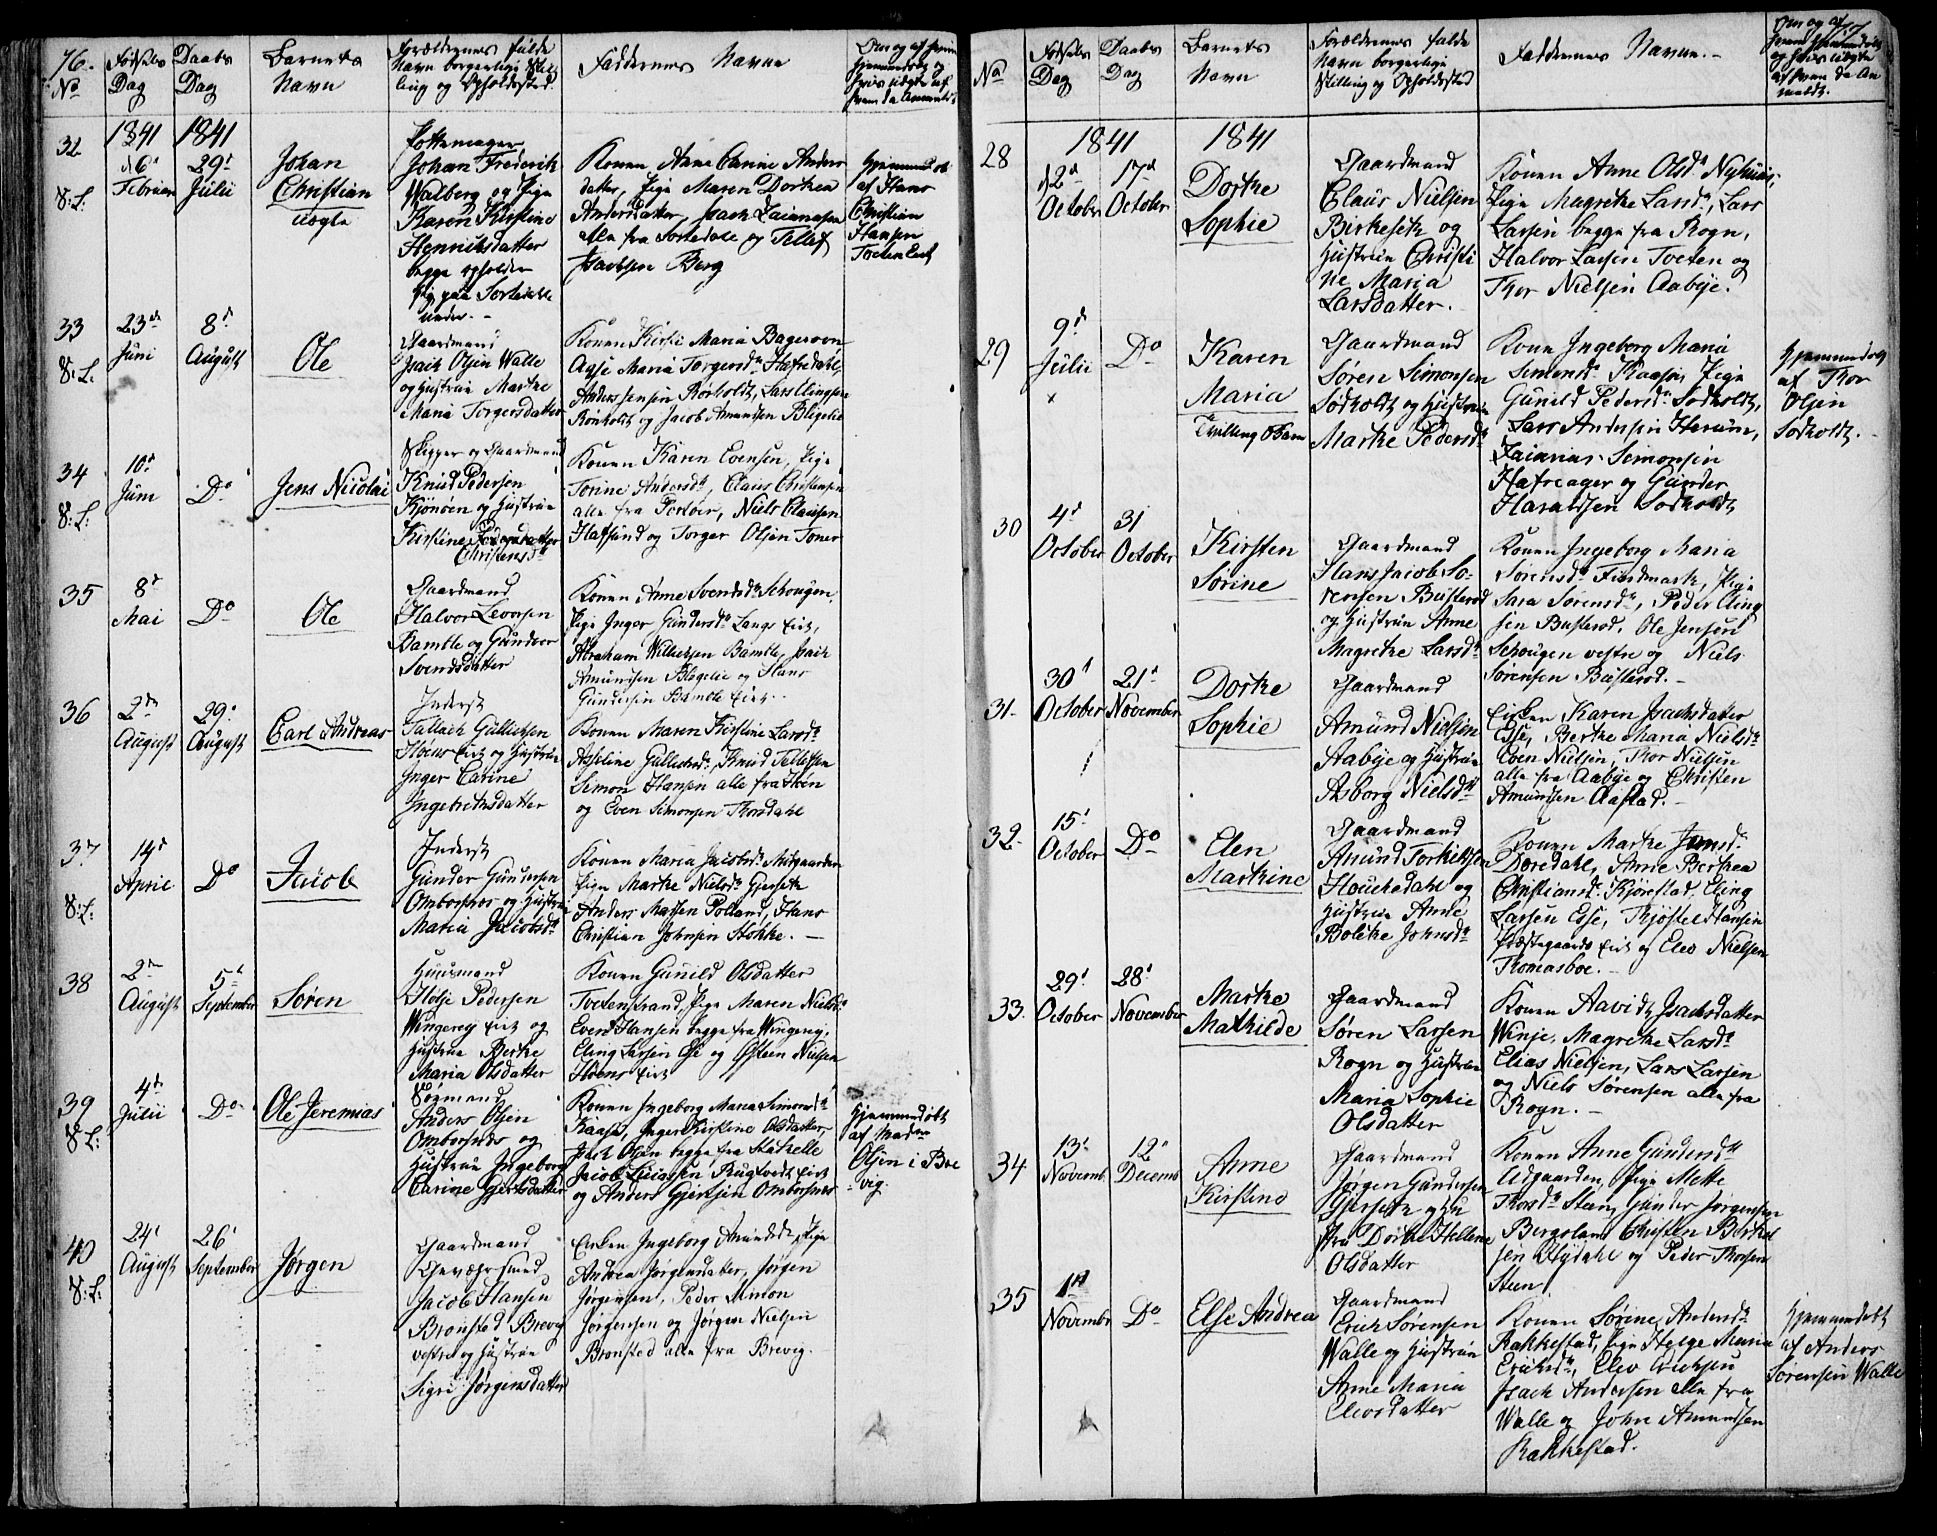 76.
No
Fødsels
Dag
Daabs
Dag
Barnets
Navn
Forældrenes fulde
Navn borgerlige Stil-
ling og Opholdssted.
Faddernes Navne
32
V: L:
1841
d 6'
Februar
1841
29'
Julii
Johan
Christian
uægte
Pottemager
Johan Frederik
Walberg og Pige
Karen Kirstine
Henriksdatter
begge opholder
sig paa
Konen Anne Carine Anders
datter, Pige Maren Dorthea
Andersdatter, Isach Zaiariasen
alle fra Sortedale og Tellef
Isachsen Berg
Hjemmedøbt
af Hans
Christian
Hansen
33
V: L:
23de
Juni
8'
August
Ole
Gaardmand
Isach Olsen Walle
og Hustrue Marthe
Maria Torgersdatter
Konen Kirsti Maria Bagerovn
Torgersd. Hafredahl,
Rørholdt, Lars Clingsen
Rönholdt og Jacob Amundsen Blegelie
34
V: L:
10'
Juni
Do
Jens Nicolai
Skipper og Gaardmand
Knud Pedersen
Kjønøen og Hustrue
Kirstine Pedersdatter
Christensd.
Konen Karen Evensen, Pige
Torine Andersd., Claus Christensen
alle fra, Niels Clausen
Hafsund og Torger Olsen Toner
35
8'
Mai
Do
Ole
Gaardmand
Halvor Levorsen
Bamble og Gundvor
Svendsdatter
Konen Anne Svendsd. Schougen
Pige Inger Gundersd. Langs Eiet,
Abraham Willumsen Bamble, Isach
Amundsen Blegelie og Hans
Gundersen Bamble Eiet.
36
2den
August
29'
August
Carl Andreas
Inderst
Tallach Gullichsen
Eiet og Hustrue
Inger Carine
Ingebrethsdatter
Konen Maren Kirstine Larsd.
Asseline Gullichsd., Knud Tellefsen
Simon Hansen alle fra
og Even Simonsen Thorsdahl
37
V: L:
14'
April
Do
Jacob
Inderst
Gunder Gundersen
Omborsnes og Hustrue
Maria Jacobsd.
Konen Maria Jacobsd. Midgaarden
Pige Marthe Nielsd. Gjerseth
Anders Madsen Polland, Hans
Christian Johnsen Stokke.
38
2den
August
5'
September
Søren
Huusmand
Pedersen
Wingereg Eiet og
Hustrue Berthe
Maria Olsdatter
Konen Gunild Olsdatter
Tvetenstrand, Pige Maren Nielsd.
Evend Hansen begge fra Wingereg,
Eling Larsen Ese og Østeen Nielsen
Eiet
39
V: L:
4de
Julii
Do
Ole Jeremias
Søemand
Anders Olsen
Omborsnes og
Hustrue Ingeborg
Carine Gjertsdatter
Konen Ingeborg Maria Simonsd.
Kaasa, Inger Kirstine Olsdatter,
Isach Olsen begge fra Stathelle
Jacob Isaacsen Rugtvedt Eiet
og Anders Gjertsen Ombersnes
Hjemmedøbt
af Madme
Olsen i Bre
vig.
40
V: L:
24'
August
26'
September
Jørgen
Gaardmand
Geværsmed
Jacob Hansen
Bronsted Brevig
vestre og Hustrue
Sigri Jørgensdatter
Enken Ingeborg Amundsd., Pige
Andrea Jørgensdatter, Jørgen
Jørgensen, Peder Simon
Jørgensen og Jørgen Nielsen
Bronsted alle fra Brevig.
77.
No
Fødsels
Dag
Daabs
Dag
Barnets
Navn
Forældrenes fulde
Navn borgerlige
Stilling og Opholdssted
Faddernes Navne.
28
1841
d 2d
October
17d
October
1841
Dorthe
Sophie
Gaardmand
Claus Nielsen
Birkeseth og
Hustrue Christi
ne Maria
Larsdatter.
Konen Anne Olsd. Nyhuus,
Pige Magrethe Larsd., Lars
Larsen begge fra Rogn,
Halvor Larsen Tveten og
Thor Nielsen Aabye.
29
9'
Julii
x
Do
Karen
Maria
Tvilling Barn
Gaardmand
Søren Simonsen
Sødholdt og Hustrue
Marthe Pedersd.
Kone Ingeborg Maria
Simonsd. Kaasa, Pige
Gunild Pedersd. Sødholdt,
Lars Andersen Herum,
Zaiarias Simonsen
Hafreager og Gunder
Haraldsen Sødholdt
Hjemmedøbt
af Thor
Olsen
Sødholdt.
30
4'
October
31
October
Kirsten
Sørine
Gaardmand
Hans Jacob Sø-
rensen Busterød
og Hustrue Anne
Magrethe Larsd.
Konen Ingeborg Maria
Sørensd. Findmark, Pige
Sara Sørensd., Peder Cling
sen Busterød, Ole Jensen
Schougen vestre og Niels
Sørensen Busterød.
31.
30'
October
21'
November
Dorthe
Sophie
Gaardmand
Amund Nielsen
Aabye og Hustrue
Asborg Nielsd.
Enken Karen Isachsdatter
Ese, Berthe Maria Nielsd.
Even Nielsen, Thor Nielsen
alle fra Aabye og Christen
Amundsen Aafstad.
32.
15'
October
Do
Elen
Marthine
Gaardmand
Amund Torkildsen
Houkedahl og
Hustrue Anne
Bolethe Johnsd.
Konen Marthe Jensd.
Doredahl, Anne Berthea
Christiansd. Kjørestad, Eling
Larsen Ese, Hansen
Præstegaards Eiet og Elev Nielsen
Thomasboe.
33.
29'
October
28'
November
Marthe
Mathilde
Gaardmand
Søren Larsen
Rogn og Hustrue
Maria Sophie
Olsdatter
Konen Isachsdatter
Winje, Magrethe Larsd.
Elias Nielsen, Lars Larsen
og Niels Sørensen alle fra
Rogn.
34
13'
Novemb.
12'
Decemb.
Anne
Kirstine
Gaardmand
Jørgen Gundersen
Gjerseth og Hu
stru Dorthe Hellene
Olsdatter
Konen Anne Gundersd.
Udgaarden, Pige Mette
Thorsd. Steen, Gunder Jørgensen
Bergsland Christen Berthel
sen og Peder Thorsen
Steen
35
1st
Novembr
Do
Else Andrea
Gaardmand
Erich Sørensen
Walle og Hustrue
Anne Maria
Elevsdatter
Konen Sørine Andersd.
Rakkestad, Pige Helge Maria
Erichsd., Elev Erichsen
Isach Andersen alle fra
Walle og John Amundsen
Rakkestad.
Hjemmedøbt
af Anders
Sørensen Walle